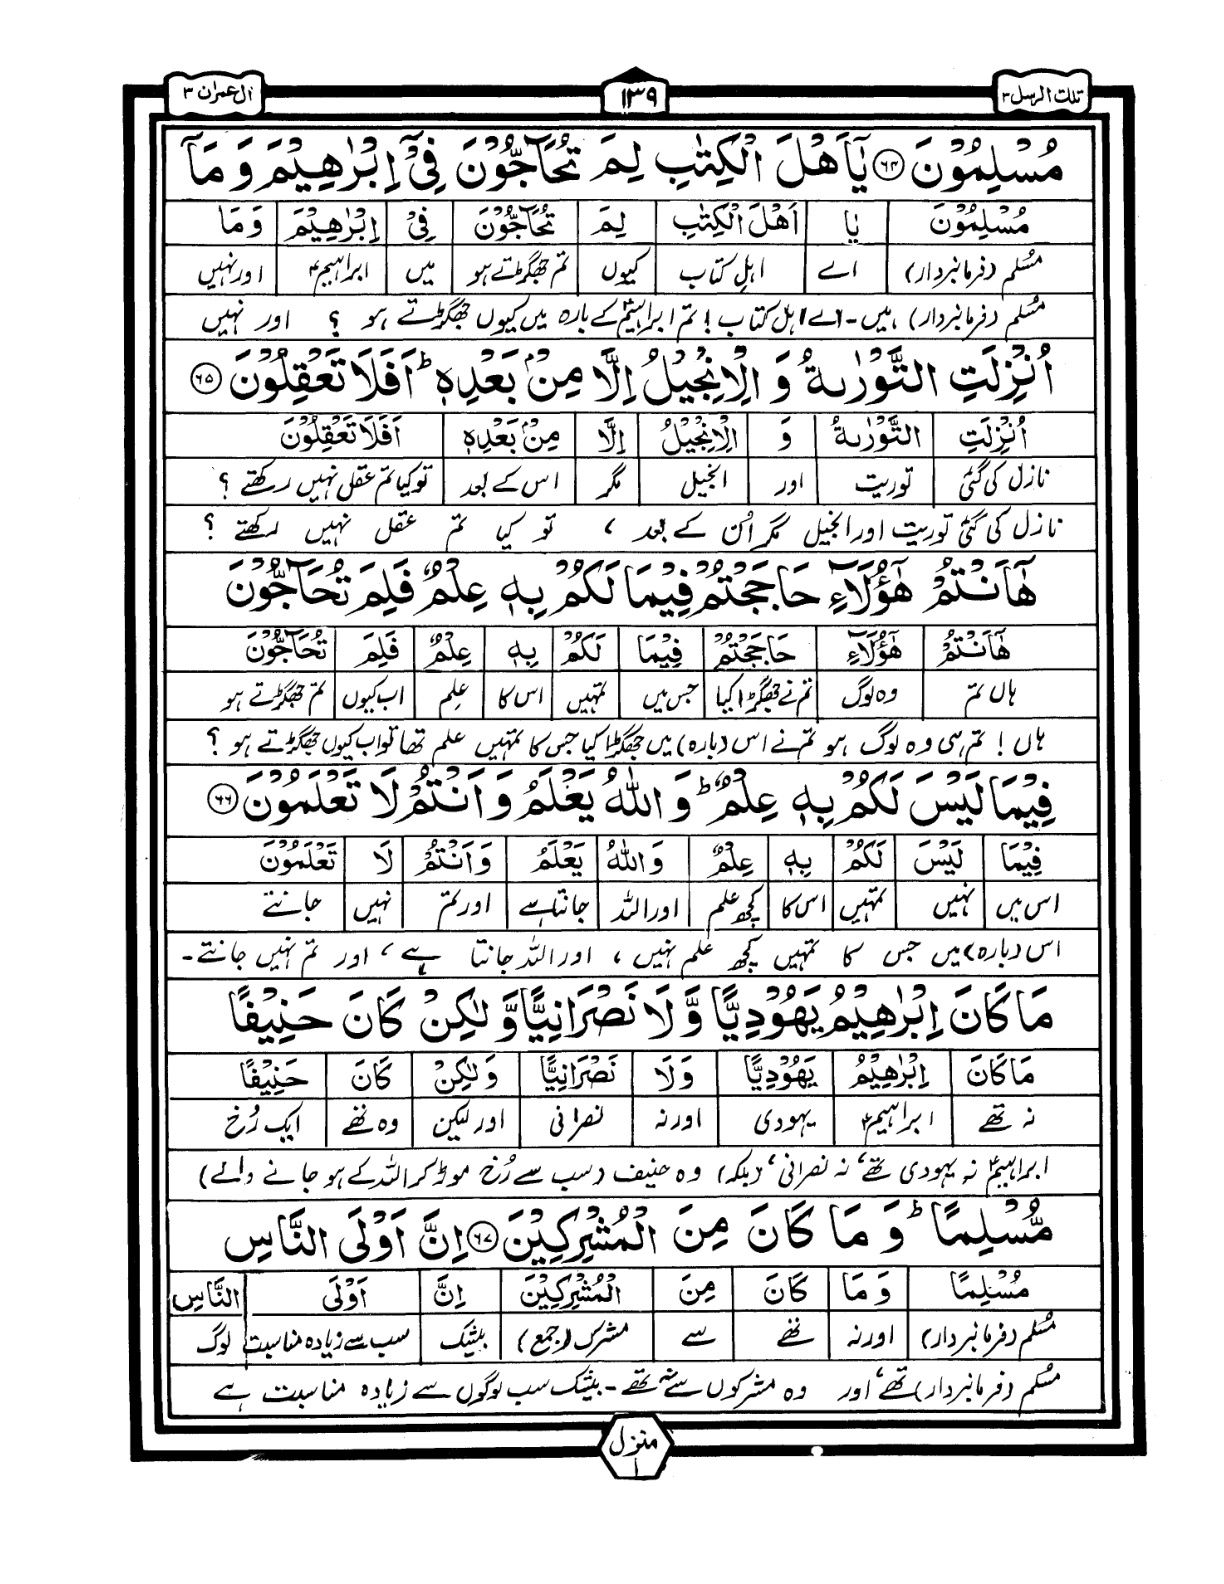 تلك الرسل ۳
۱۳۹
ال عمران ۳
مُسْلِمُوْنَ ﴿۶۴﴾ يٰۤاَهْلَ الْكِتٰبِ لِمَ تُحَآجُّوْنَ فِيْۤ اِبْرٰهِيْمَ وَ مَاۤ
مُسْلِمُوْنَ يٰا اَهْلَ الْكِتٰبِ لِمَ تُحَآجُّوْنَ فِيْ اِبْرٰهِيْمَ وَ مَا
مُسلم (فرمانبردار) اے اہلِ کتاب کیوں تم جھگڑتے ہو میں ابراہیمؑ اور نہیں
مُسلم (فرمانبردار) ہیں۔ اے اہل کتاب! تم ابراہیمؑ کے بارہ میں کیوں جھگڑتے ہو ؟ اور نہیں
اُنْزِلَتِ التَّوْرٰىةُ وَ الْاِنْجِيْلُ اِلَّا مِنْۢ بَعْدِهٖ ؕ اَفَلَا تَعْقِلُوْنَ ﴿۶۵﴾
اُنْزِلَتِ التَّوْرٰىةُ وَ الْاِنْجِيْلُ اِلَّا مِنْۢ بَعْدِهٖ اَفَلَا تَعْقِلُوْنَ
نازل کی گئی توریت اور انجیل مگر اس کے بعد تو کیا تم عقل نہیں رکھتے ؟
نازل کی گئی توریت اور انجیل مگر اُن کے بعد ، تو کیا تم عقل نہیں رکھتے ؟
هٰۤاَنْتُمْ هٰۤؤُلَآءِ حَاجَجْتُمْ فِيْمَا لَكُمْ بِهٖ عِلْمٌ فَلِمَ تُحَآجُّوْنَ
هٰۤاَنْتُمْ هٰۤؤُلَآءِ حَاجَجْتُمْ فِيْمَا لَكُمْ بِهٖ عِلْمٌ فَلِمَ تُحَآجُّوْنَ
ہاں تم وہ لوگ تم نے جھگڑا کیا جس میں تمہیں اس کا علم اب کیوں تم جھگڑتے ہو
ہاں ! تم ہی وہ لوگ ہو تم نے اس (بارہ) میں جھگڑا کیا جس کا تمہیں علم تھا تو اب کیوں جھگڑتے ہو ؟
فِيْمَا لَيْسَ لَكُمْ بِهٖ عِلْمٌ ؕ وَ اللّٰهُ يَعْلَمُ وَ اَنْتُمْ لَا تَعْلَمُوْنَ ﴿۶۶﴾
فِيْمَا لَيْسَ لَكُمْ بِهٖ عِلْمٌ وَ اللّٰهُ يَعْلَمُ وَ اَنْتُمْ لَا تَعْلَمُوْنَ
اس میں نہیں تمہیں اس کا کچھ علم اور اللہ جانتا ہے اور تم نہیں جانتے
اس (بارہ) میں جس کا تمہیں کچھ علم نہیں ، اور اللہ جانتا ہے ، اور تم نہیں جانتے۔
مَا كَانَ اِبْرٰهِيْمُ يَهُوْدِيًّا وَّ لَا نَصْرَانِيًّا وَّ لٰكِنْ كَانَ حَنِيْفًا
مَا كَانَ اِبْرٰهِيْمُ يَهُوْدِيًّا وَ لَا نَصْرَانِيًّا وَ لٰكِنْ كَانَ حَنِيْفًا
نہ تھے ابراہیمؑ یہودی اور نہ نصرانی اور لیکن وہ تھے ایک رُخ
ابراہیمؑ نہ یہودی تھے، نہ نصرانی، (بلکہ) وہ حنیف (سب سے رُخ موڑ کر اللہ کے ہو جانے والے)
مُّسْلِمًا ؕ وَ مَا كَانَ مِنَ الْمُشْرِكِيْنَ ﴿۶۷﴾ اِنَّ اَوْلَى النَّاسِ
مُسْلِمًا وَ مَا كَانَ مِنَ الْمُشْرِكِيْنَ اِنَّ اَوْلَى النَّاسِ
مُسلم (فرمانبردار) اور نہ تھے سے مشرک (جمع) بیشک سب سے زیادہ مناسبت لوگ
مُسلم (فرمانبردار) تھے، اور وہ مشرکوں سے نہ تھے۔ بیشک سب لوگوں سے زیادہ مناسبت ہے
منزل ۱